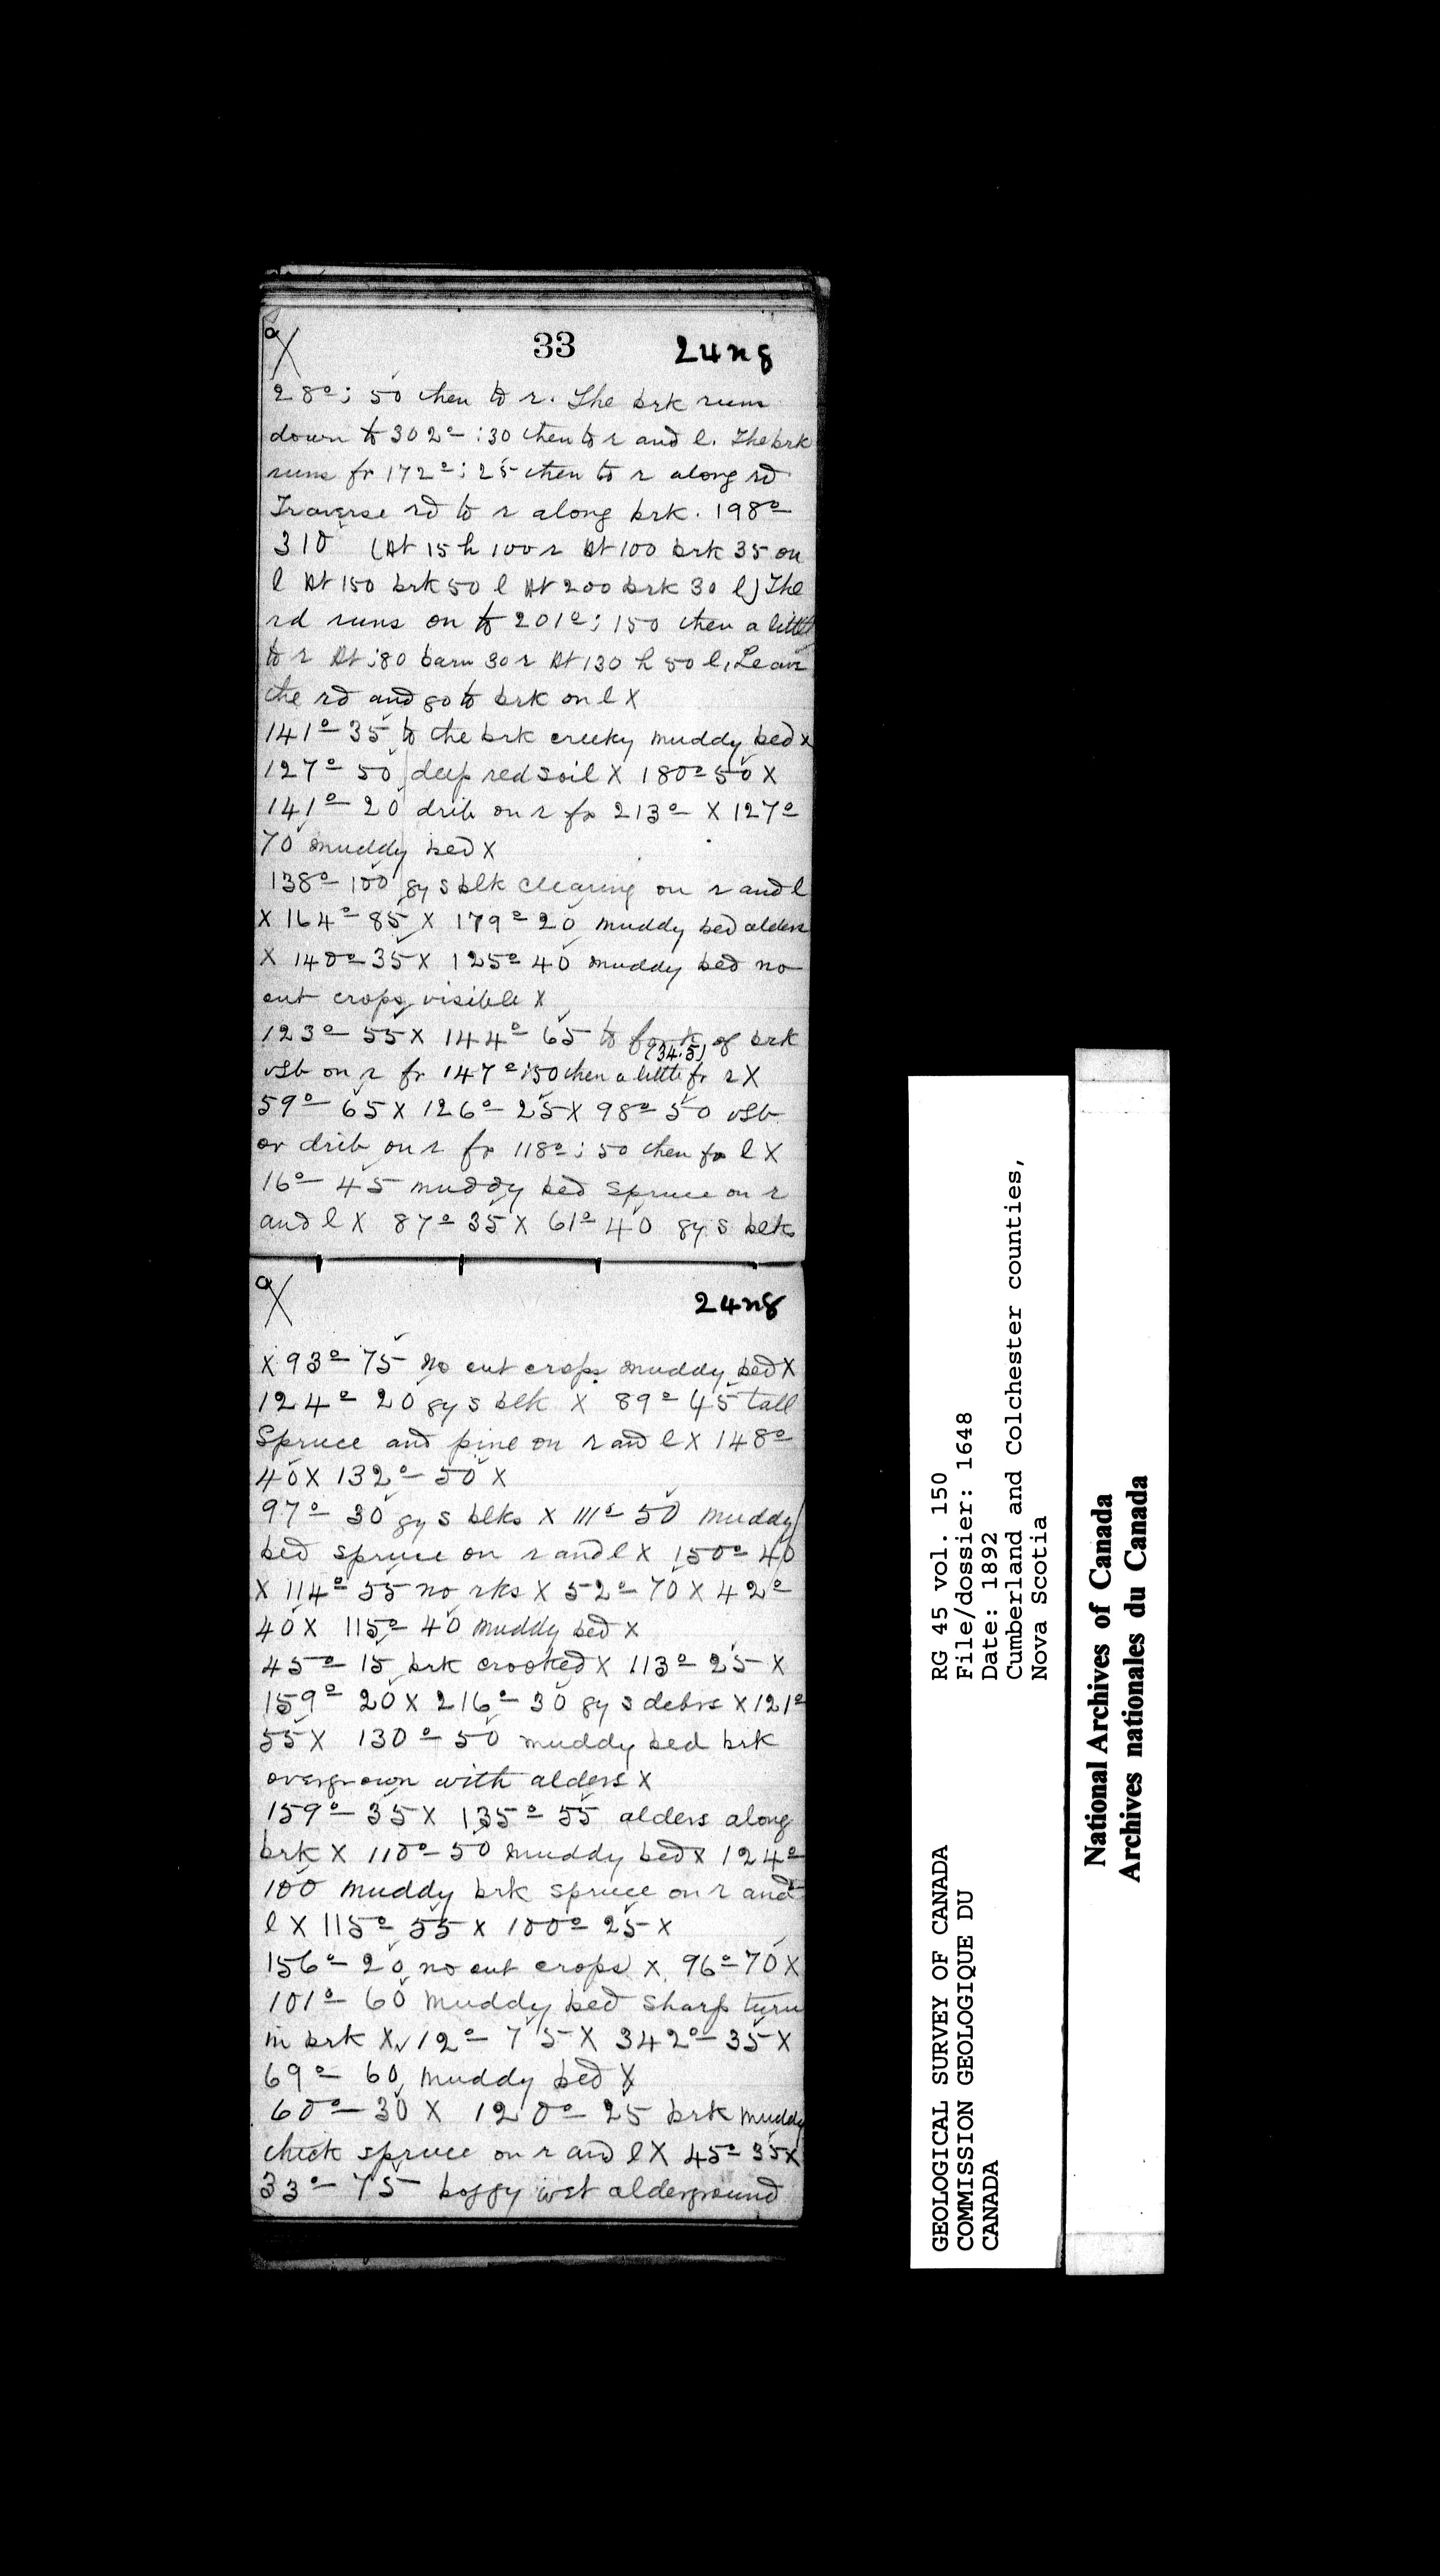 a
X 33 24 n 8
28°; 50 then to r. The brk runs
down to 302°-; 30 then to r and l. The brk
runs fr 172°; 25 then to r along rd
Traverse rd to r along brk. 198°-
310 (At 15 h 100 r At 100 brk 35 on
l At 150 brk 50 l At 200 brk 30 l) The
rd runs on to 201°; 150 then a little
to r At ;80 barn 30 r At 130 h 50 l, Leave
the rd and go to brk on l X
141°- 35 to the brk creeky muddy bed x
127°- 50 deep red soil X 180°- 50 X
141°- 20 drib on r fr 213°- X 127°-
70 muddy bed X
138°- 100 gy s blk clearing on r and l
X 164°- 85 X 179°- 20 muddy bed alders
X 140°- 35 X 125°- 40 muddy bed no
out crops visible X
123°- 55 X 144°- 65 to fork of brk
(34.5)
vsb on r fr 147°; 50 then a little fr r X
59°- 65 X 126°- 25 X 98°- 50 vsb
or drib on r fr 118°; 50 then fr l X
16°- 45 muddy bed spruce on r
and l X 87°- 35 X 61°- 40 gy s blks
a
X 24 n 8
X 93°- 75 no out crops muddy bed X
124°- 20 gy s blk X 89°- 45 tall
Spruce and pine on r and l X 148°-
40 X 132°- 50 X
97°- 30 gy s blks X 111°- 50 muddy
bed spruce on r and l X 150°- 40
X 114°- 55 no rks X 52°- 70 X 42°-
40 X 115°- 40 muddy bed X
45°- 15 brk crooked X 113°- 25 X
159°- 20 X 216°- 30 gy s debrs X 121°
55 X 130°- 50 muddy bed brk
overgrown with alders X
159°- 35 X 135°- 55 alders along
brk X 110°- 50 muddy bed X 124°-
100 muddy brk spruce on r and
l X 115°- 55 X 100°- 25 X
156°- 20 no out crops X 96°- 70 X
101°- 60 muddy bed sharp turn
in brk X 12°- 75 X 342°- 35 X
69°- 60 muddy bed X
60°- 30 X 120°- 25 brk muddy
thick spruce on r and l X 45°- 35 X
33°- 75 boggy wet alderground
GEOLOGICAL SURVEY OF CANADA
COMMISSION GEOLOGIQUE DU
CANADA
RG 45 vol. 150
File/dossier: 1648
Date: 1892
Cumberland and Colchester counties,
Nova Scotia
National Archives of Canada
Archives nationales du Canada